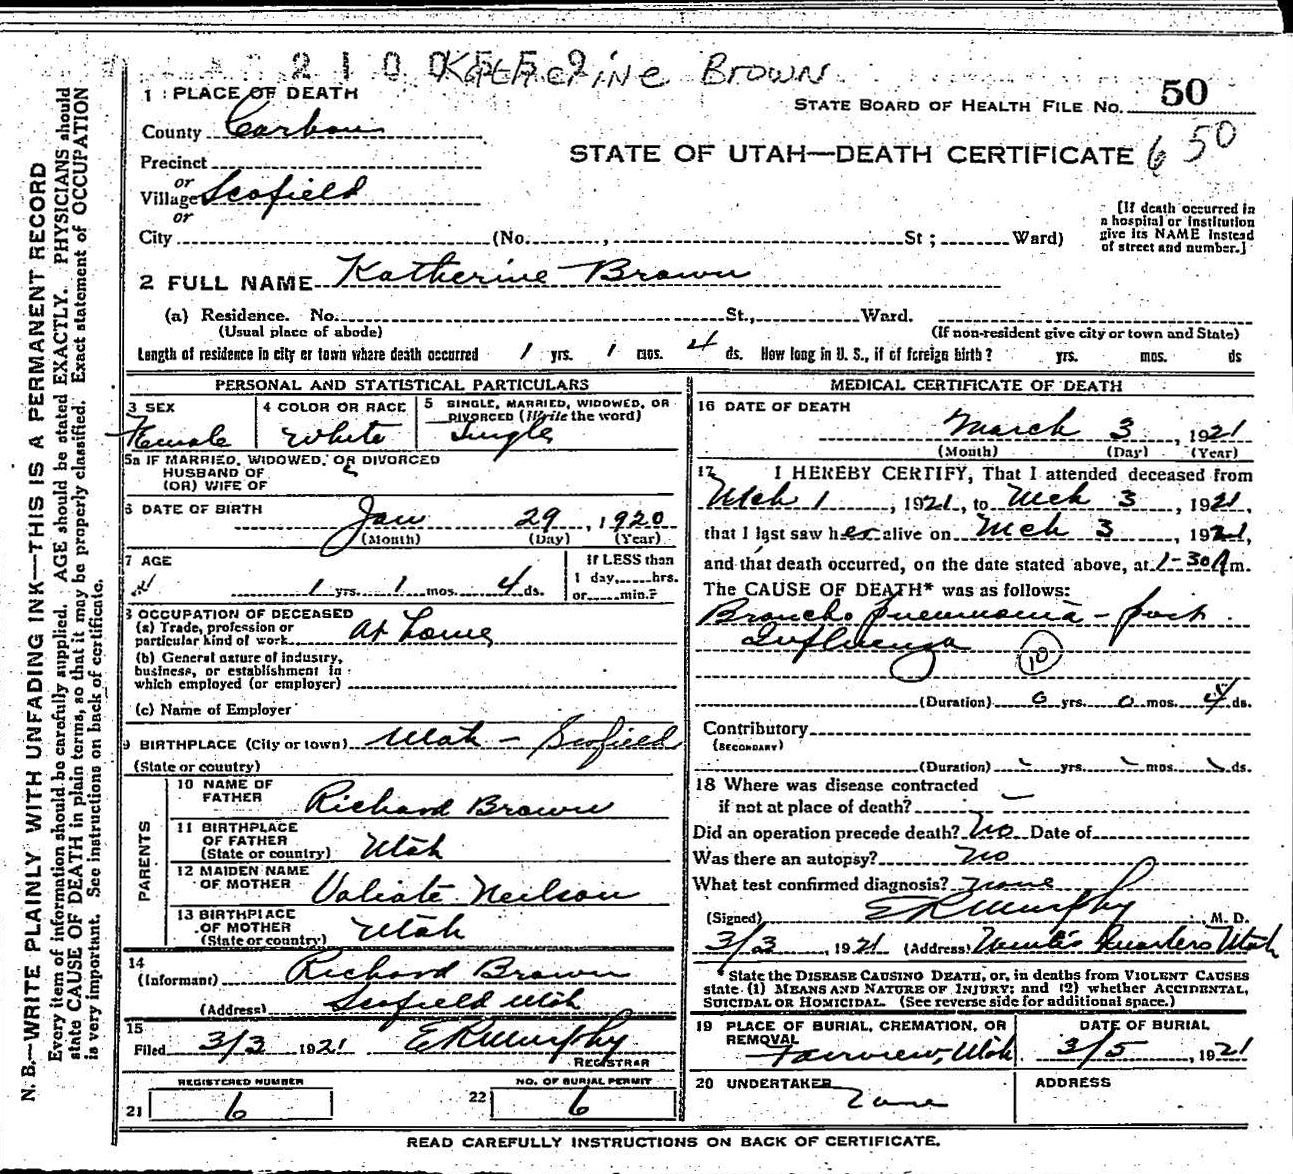 Katherine Brown
1 PLACE OF DEATH
STATE BOARD OF HEALTH FILE NO. 50
County Carbon
650
STATE OF UTAH—DEATH CERTIFICATE
Precinct
or
Village Scofield
or
City (No. , St ; Ward)
[If death occurred in
a hospital or institution
give its NAME instead
of street and number.]
2 FULL NAME Katherine Brown
(a) Residence. No. St., Ward.
(Usual place of abode) (If non-resident give city or town and State)
Length of residence in city or town where death occurred 1 yrs. 1 mos. 4 ds. How long in U. S., if of foreign birth? yrs. mos. ds
PERSONAL AND STATISTICAL PARTICULARS
3 SEX
Female
4 COLOR OR RACE
White
5 SINGLE, MARRIED, WIDOWED, OR
DIVORCED (Write the word)
Single
5a IF MARRIED, WIDOWED, OR DIVORCED
HUSBAND OF
(OR) WIFE OF
6 DATE OF BIRTH
Jan 29, 1920
(Month) (Day) (Year)
7 AGE
1 yrs. 1 mos. 4 ds.
If LESS than
1 day, hrs.
or min.?
8 OCCUPATION OF DECEASED
(a) Trade, profession or
particular kind of work At home
(b) General nature of industry,
business, or establishment in
which employed (or employer)
(c) Name of Employer
9 BIRTHPLACE (City or town) Utah - Scofield
(State or country)
PARENTS
10 NAME OF
FATHER Richard Brown
11 BIRTHPLACE
OF FATHER
(State or country) Utah
12 MAIDEN NAME
OF MOTHER Valiate Neilson
13 BIRTHPLACE
OF MOTHER
(State or country) Utah
14
(Informant) Richard Brown
(Address) Scofield Utah
15
Filed 3/3 1921 E R Murphy
REGISTRAR
REGISTERED NUMBER
21 6
NO. OF BURIAL PERMIT
22 6
MEDICAL CERTIFICATE OF DEATH
16 DATE OF DEATH
March 3, 1921
(Month) (Day) (Year)
17 I HEREBY CERTIFY, That I attended deceased from
Mch 1, 1921, to Mch 3, 1921,
that I last saw her alive on Mch 3, 1921,
and that death occurred, on the date stated above, at 1-30 A m.
The CAUSE OF DEATH* was as follows:
Broncho pneumonia - post
Influenza 10
(Duration) 0 yrs. 0 mos. 4 ds.
Contributory
(SECONDARY)
(Duration) yrs. mos. ds.
18 Where was disease contracted
if not at place of death? —
Did an operation precede death? No Date of
Was there an autopsy? No
What test confirmed diagnosis? None
(Signed) E R Murphy, M. D.
3/3, 1921 (Address) Quarters Utah
State the DISEASE CAUSING DEATH, or, in deaths from VIOLENT CAUSES
state (1) MEANS AND NATURE OF INJURY; and (2) whether ACCIDENTAL,
SUICIDAL OR HOMICIDAL. (See reverse side for additional space.)
19 PLACE OF BURIAL, CREMATION, OR
REMOVAL
Fairview, Utah
DATE OF BURIAL
3/5, 1921
20 UNDERTAKER
None
ADDRESS
READ CAREFULLY INSTRUCTIONS ON BACK OF CERTIFICATE.
N. B.—WRITE PLAINLY WITH UNFADING INK—THIS IS A PERMANENT RECORD
Every item of information should be carefully supplied. AGE should be stated EXACTLY. PHYSICIANS should
state CAUSE OF DEATH in plain terms, so that it may be properly classified. Exact statement of OCCUPATION
is very important. See instructions on back of certificate.